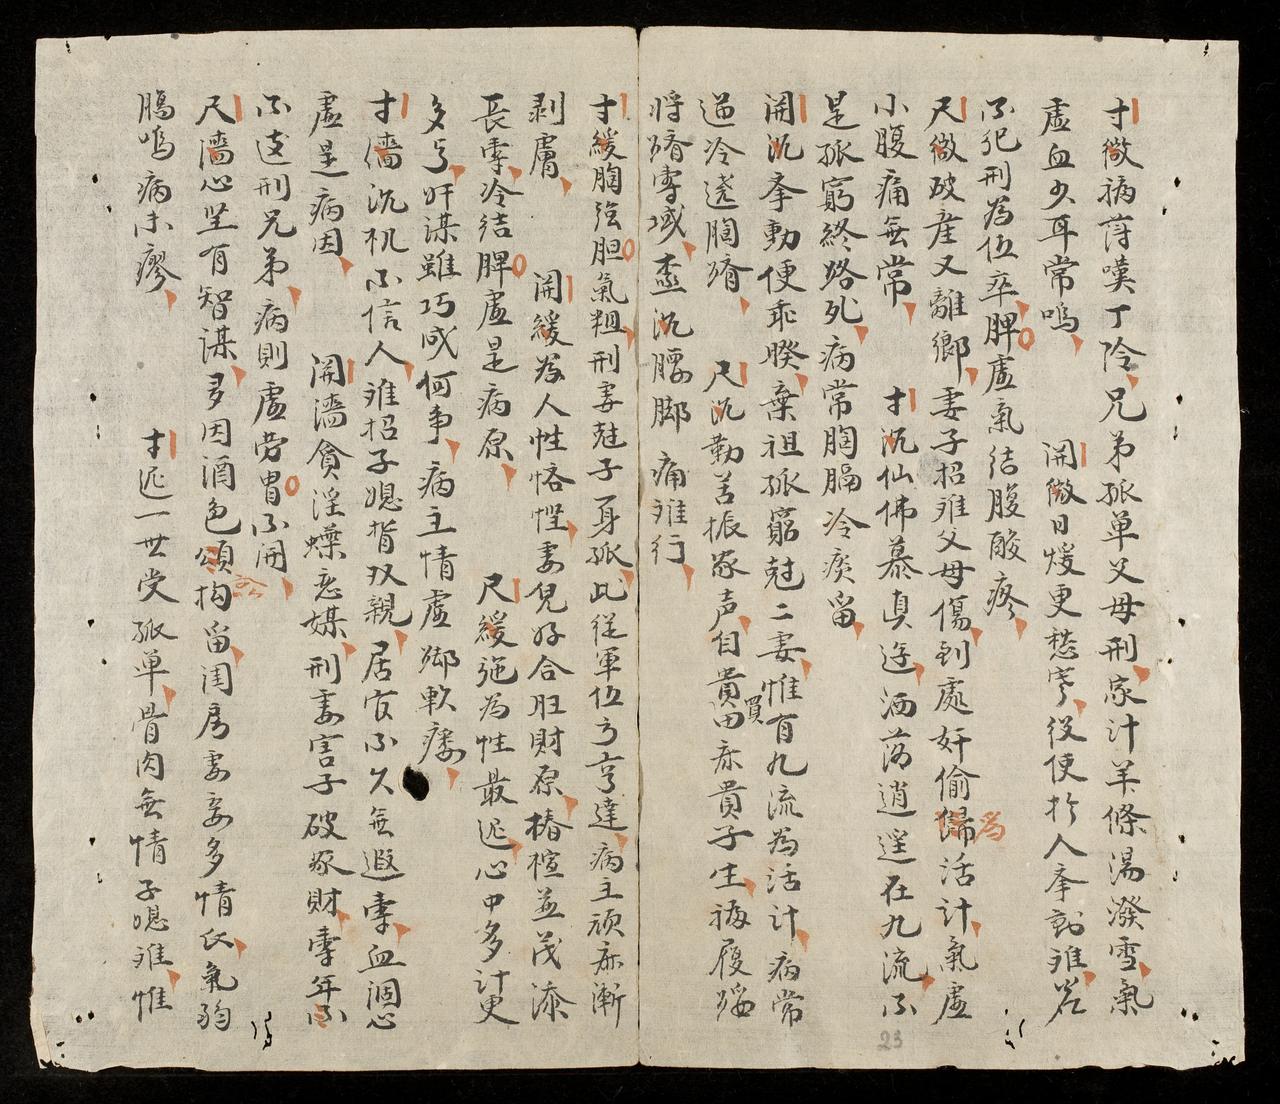 寸微病莳嘆丁阾兄弟孤单父母刑家汁羊條湯潑雪氣
虛血少耳常鳴 関微日煖更愁寒役使於人牽動难
不犯刑為伍卒脾虛氣结腹酸疼
尺微破產又離鄉妻子招难父母傷到處奸偷歸為活计氣虛
小腹痛無常 寸沉仙佛慕真遊洒落逍遥在九流不
是孤窮終路死病常胸膈冷痰留
関沉牽動便乖睽棄祖孤窮尅二妻惟有九流為活计病常
逆冷遶胸臍 尺沉勤苦振家声自買貴田亦貴子生福履綏
将臍寒域 沉腰脚痛难行
寸緩胸強胆氣粗刑妻尅子身孤此従軍伍亨達病主頑麻漸
剥膚 関緩為人性悋慳妻児好合旺財原椿楦並茂添
長寿冷结脾虛是病原 尺緩施為性最迟心中多计更
多亏奸謀雖巧成何事病主情虛脚軟痿
寸濇沉机不信人难招子媳背双親居官不久無遐寿血凋心
虛是病因 関濇貪淫蝶恋媒刑妻害子破家財寿年不
不違刑兄弟病則虛劳胃不開
尺濇心坚有智謀多因酒色頌构留閨房妻妾多情氣弱
膓鳴病未瘳 寸迟一世受孤单骨肉無情子媳难惟
23